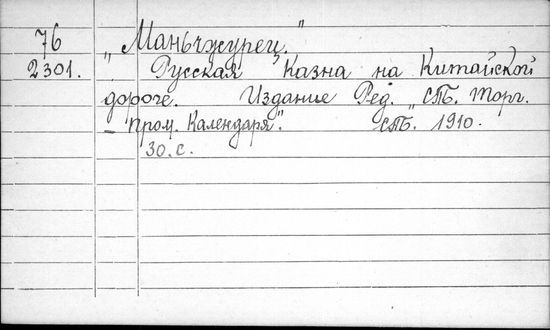 76 „Маньчжурец."
2301. Русская Казна на Китайской
дороге. Издание Ред. „СПб. Торг.
– Пром. Календаря". СПб. 1910.
30. с.